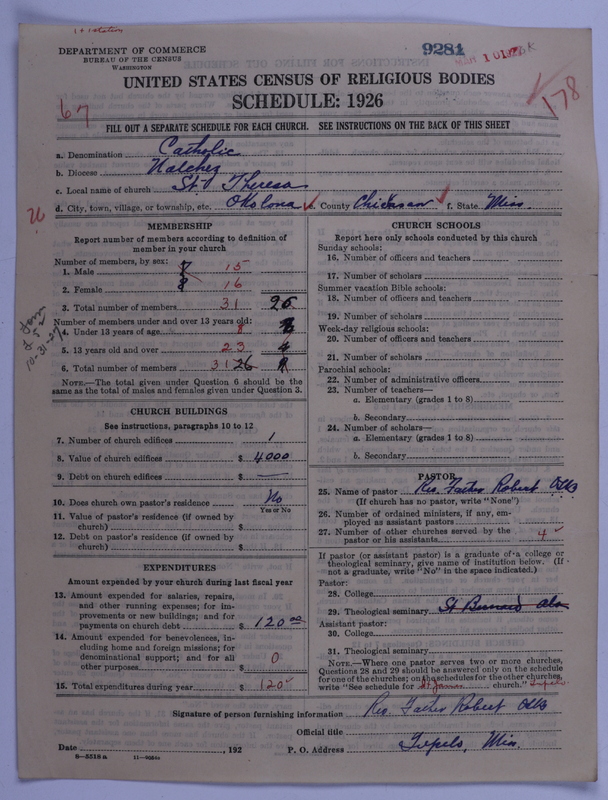 DEPARTMENT OF COMMERCE
BUREAU OF THE CENSUS
WASHINGTON
9281
UNITED STATES CENSUS OF RELIGIOUS BODIES
SCHEDULE: 1926
67
178
FILL OUT A SEPARATE SCHEDULE FOR EACH CHURCH. SEE INSTRUCTIONS ON THE BACK OF THIS SHEET
a. Denomination Catholic
b. Diocese Natchez
c. Local name of church St Theresa
d. City, town, village, or township, etc. Okolona e. County Chickasaw f. State Miss.
MEMBERSHIP
Report number of members according to definition of member in your church
Number of members, by sex:
1. Male 7 15
2. Female 8 16
3. Total number of members 31 26
Number of members under and over 13 years old:
4. Under 13 years of age 8
5. 13 years old and over 23
6. Total number of members 31 26
NOTE.—The total given under Question 6 should be the same as the total of males and females given under Question 3.
CHURCH BUILDINGS
See instructions, paragraphs 10 to 12
7. Number of church edifices 1
8. Value of church edifices $ 4000
9. Debt on church edifices $ —
10. Does church own pastor's residence No
Yes or No
11. Value of pastor's residence (if owned by church) $
12. Debt on pastor's residence (if owned by church) $
EXPENDITURES
Amount expended by your church during last fiscal year
13. Amount expended for salaries, repairs, and other running expenses; for improvements or new buildings; and for payments on church debt $ 120.00
14. Amount expended for benevolences, including home and foreign missions; for denominational support; and for all other purposes $ 0
15. Total expenditures during year $ 120
CHURCH SCHOOLS
Report here only schools conducted by this church
Sunday schools:
16. Number of officers and teachers
17. Number of scholars
Summer vacation Bible schools:
18. Number of officers and teachers
19. Number of scholars
Week-day religious schools:
20. Number of officers and teachers
21. Number of scholars
Parochial schools:
22. Number of administrative officers
23. Number of teachers—
a. Elementary (grades 1 to 8)
b. Secondary
24. Number of scholars—
a. Elementary (grades 1 to 8)
b. Secondary
PASTOR
25. Name of pastor Rev. Father Robert
(If church has no pastor, write "None")
26. Number of ordained ministers, if any, employed as assistant pastors
27. Number of other churches served by the pastor or his assistants 4
If pastor (or assistant pastor) is a graduate of a college or theological seminary, give name of institution below. (If not a graduate, write "No" in the space indicated.)
Pastor:
28. College
29. Theological seminary St Bernard Ala
Assistant pastor:
30. College
31. Theological seminary
NOTE.—Where one pastor serves two or more churches, Questions 28 and 29 should be answered only on the schedule for one of the churches; on the schedules for the other churches, write "See schedule for St James church." Tupelo
Signature of person furnishing information Rev. Father Robert
Official title
Date , 192 P. O. Address Tupelo, Miss.
8—5518a